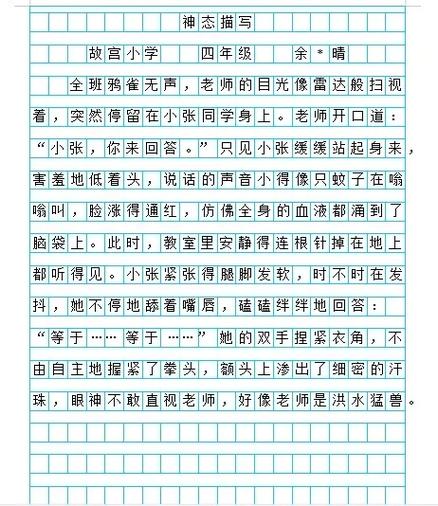 神态描写
故宫小学 四年级 余*晴
全班鸦雀无声，老师的目光像雷达般扫视
着，突然停留在小张同学身上。老师开口道：
“小张，你来回答。”只见小张缓缓站起身来，
害羞地低着头，说话的声音小得像只蚊子在嗡
嗡叫，脸涨得通红，仿佛全身的血液都涌到了
脑袋上。此时，教室里安静得连根针掉在地上
都听得见。小张紧张得腿脚发软，时不时在发
抖，她不停地舔着嘴唇，磕磕绊绊地回答：
“等于……等于……”她的双手捏紧衣角，不
由自主地握紧了拳头，额头上渗出了细密的汗
珠，眼神不敢直视老师，好像老师是洪水猛兽。